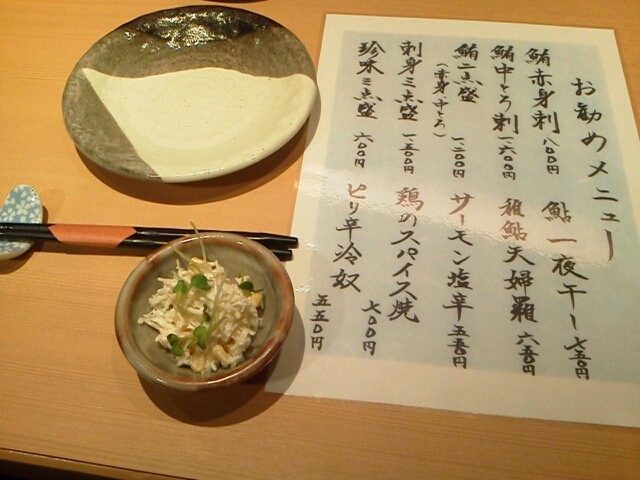 お勧めメニュー
鮪赤身刺 八〇〇円
鮪中とろ刺 一六〇〇円
鮪二点盛 一二〇〇円
(赤身、中とろ)
刺身三点盛 一五〇〇円
珍味三点盛 六〇〇円
鮎一夜干し 七五〇円
稚鮎天婦羅 六五〇円
サーモン塩辛 五五〇円
鶏のスパイス焼 七〇〇円
ピリ辛冷奴 五五〇円